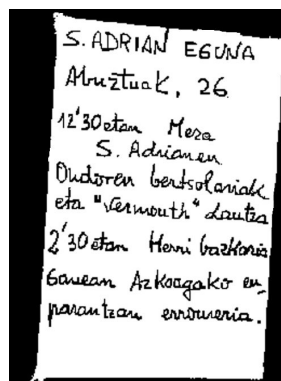 S. ADRIAN EGUNA
Abuztuak, 26
12'30etan Meza
S. Adrianen
Ondoren bertsolariak
eta "Vermouth" dautza
2'30etan Herri bazkaria
Gauean Azkoagako en_
parantzan erromeria.